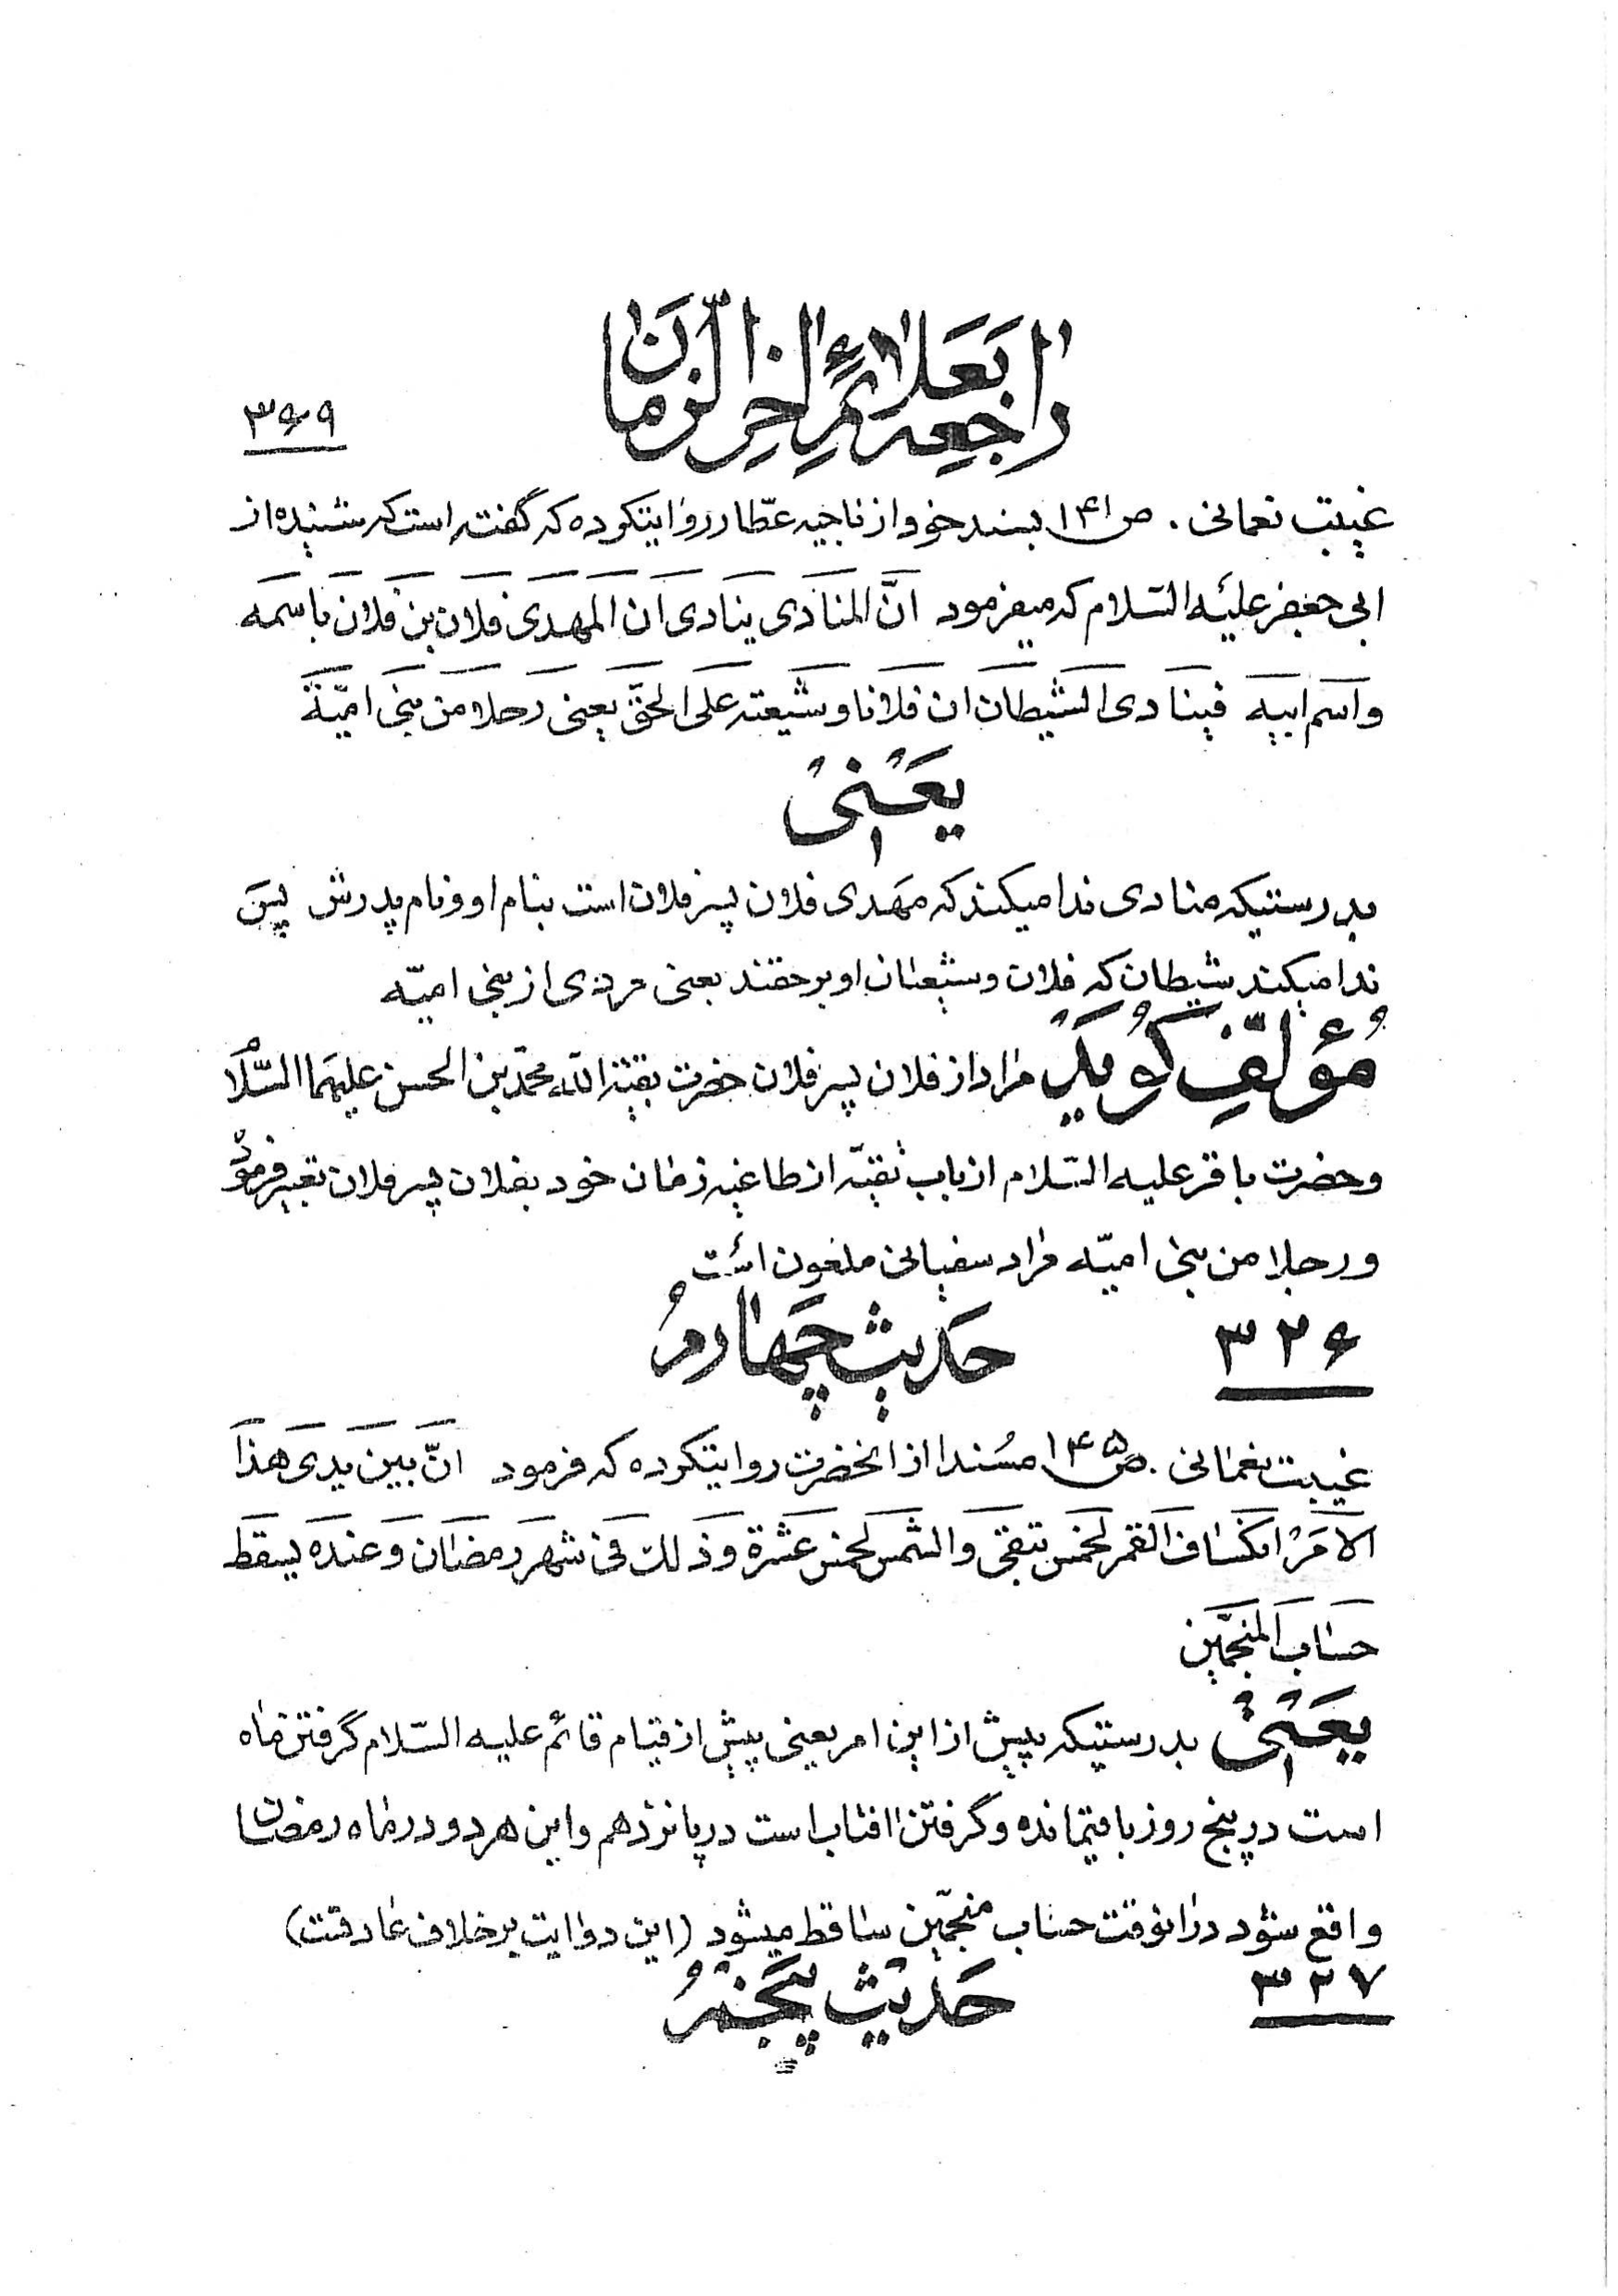 راجعه بعلائم اخر الزمان
۳۶۹
غیبت نعمانی . ص۱۴۱ بسند خود از ناجیه عطّار روایتکرده که گفته است که شنیده از
ابی جعفر علیه السّلام که میفرمود انّ المنادی ینادی ان المهدی فلان بن فلان باسمه
و اسم ابیه فینادی الشیطان ان فلانا و شیعته علی الحقّ یعنی رجلا من بنی امیّة
یعنی
بدرستیکه منادی ندا میکند که مهدی فلان پسر فلان است بنام او و نام پدرش پس
ندا میکند شیطان که فلان و شیعیان او بر حقند یعنی مردی از بنی امیّه
مؤلّف گوید مراد از فلان پسر فلان حضرت بقیّة الله محمّد بن الحسن علیهما السّلام
و حضرت باقر علیه السّلام از باب تقیّه از طاغیه زمان خود بفلان پسر فلان تعبیر فرموده
و رجلا من بنی امیّه مراد سفیانی ملعون است
۳۲۶ حدیث چهارم
غیبت نعمانی . ص۱۴۵ مسندا از انحضرت روایتکرده که فرمود انّ بین یدی هذا
الامر انکساف القمر لخمس تبقی و الشمس لخمس عشرة و ذلک فی شهر رمضان و عنده یسقط
حساب المنجّمین
یعنی بدرستیکه پیش از این امر یعنی پیش از قیام قائم علیه السّلام گرفتن ماه
است در پنج روز باقیمانده و گرفتن افتاب است در پانزدهم و این هر دو در ماه رمضان
واقع شود در انوقت حساب منجّمین ساقط میشود (این دو ایت بر خلاف عادتست)
۳۲۷ حدیث پنجم